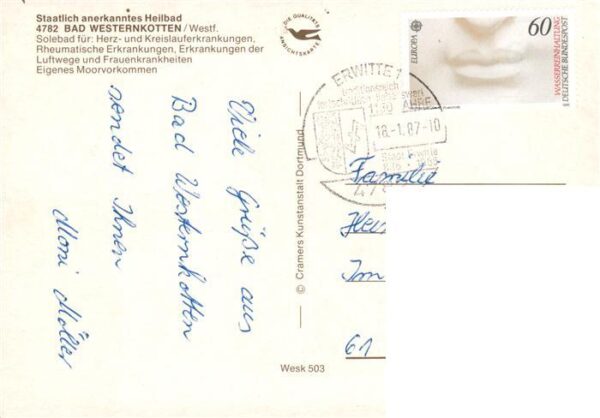 Staatlich anerkanntes Heilbad
4782 BAD WESTERNKOTTEN / Westf.
Solebad für: Herz- und Kreislauferkrankungen,
Rheumatische Erkrankungen, Erkrankungen der
Luftwege und Frauenkrankheiten
Eigenes Moorvorkommen
DIE QUALITÄTS
ANSICHTSKARTE
EUROPA CEPT
60
WASSERREINHALTUNG
DEUTSCHE BUNDESPOST
ERWITTE 1
1150 JAHRE
18.-1.87-10
Viele Grüße aus
Bad Westernkotten
sendet Ihnen
Moni Möller
© Cramers Kunstanstalt Dortmund
Familie
Im
61
Wesk 503